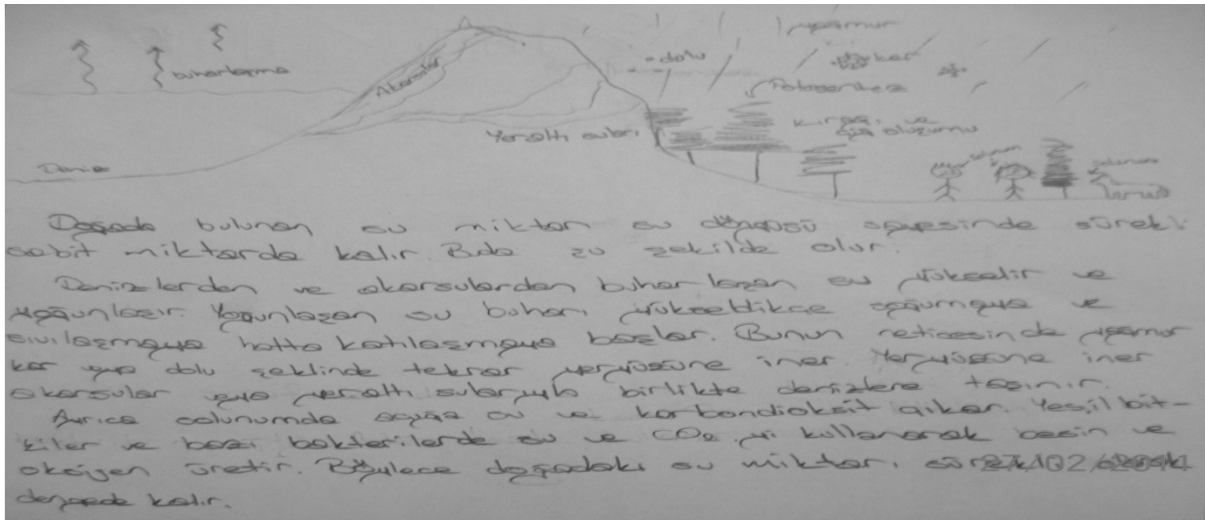 yağmur
dolu
kar
buharlaşma
Akarsular
Fotosentez
Yeraltı suları
kırağı ve
çiğ oluşumu
Deniz
solunum
solunum
Doğada bulunan su miktarı su döngüsü sayesinde sürekli
sabit miktarda kalır. Buda şu şekilde olur.
Denizlerden ve akarsulardan buharlaşan su yükselir ve
yoğunlaşır. Yoğunlaşan su buharı yükseldikçe soğumaya ve
sıvılaşmaya hatta katılaşmaya başlar. Bunun neticesinde yağmur
kar veya dolu şeklinde tekrar yeryüzüne iner. Yeryüzüne iner
akarsular veya yeraltı sularıyla birlikte denizlere taşınır.
Ayrıca solunumda açığa su ve karbondioksit çıkar. Yeşil bit-
kiler ve bazı bakterilerde su ve CO2 yi kullanarak besin ve
oksijen üretir. Böylece doğadaki su miktarı
dengede kalır.